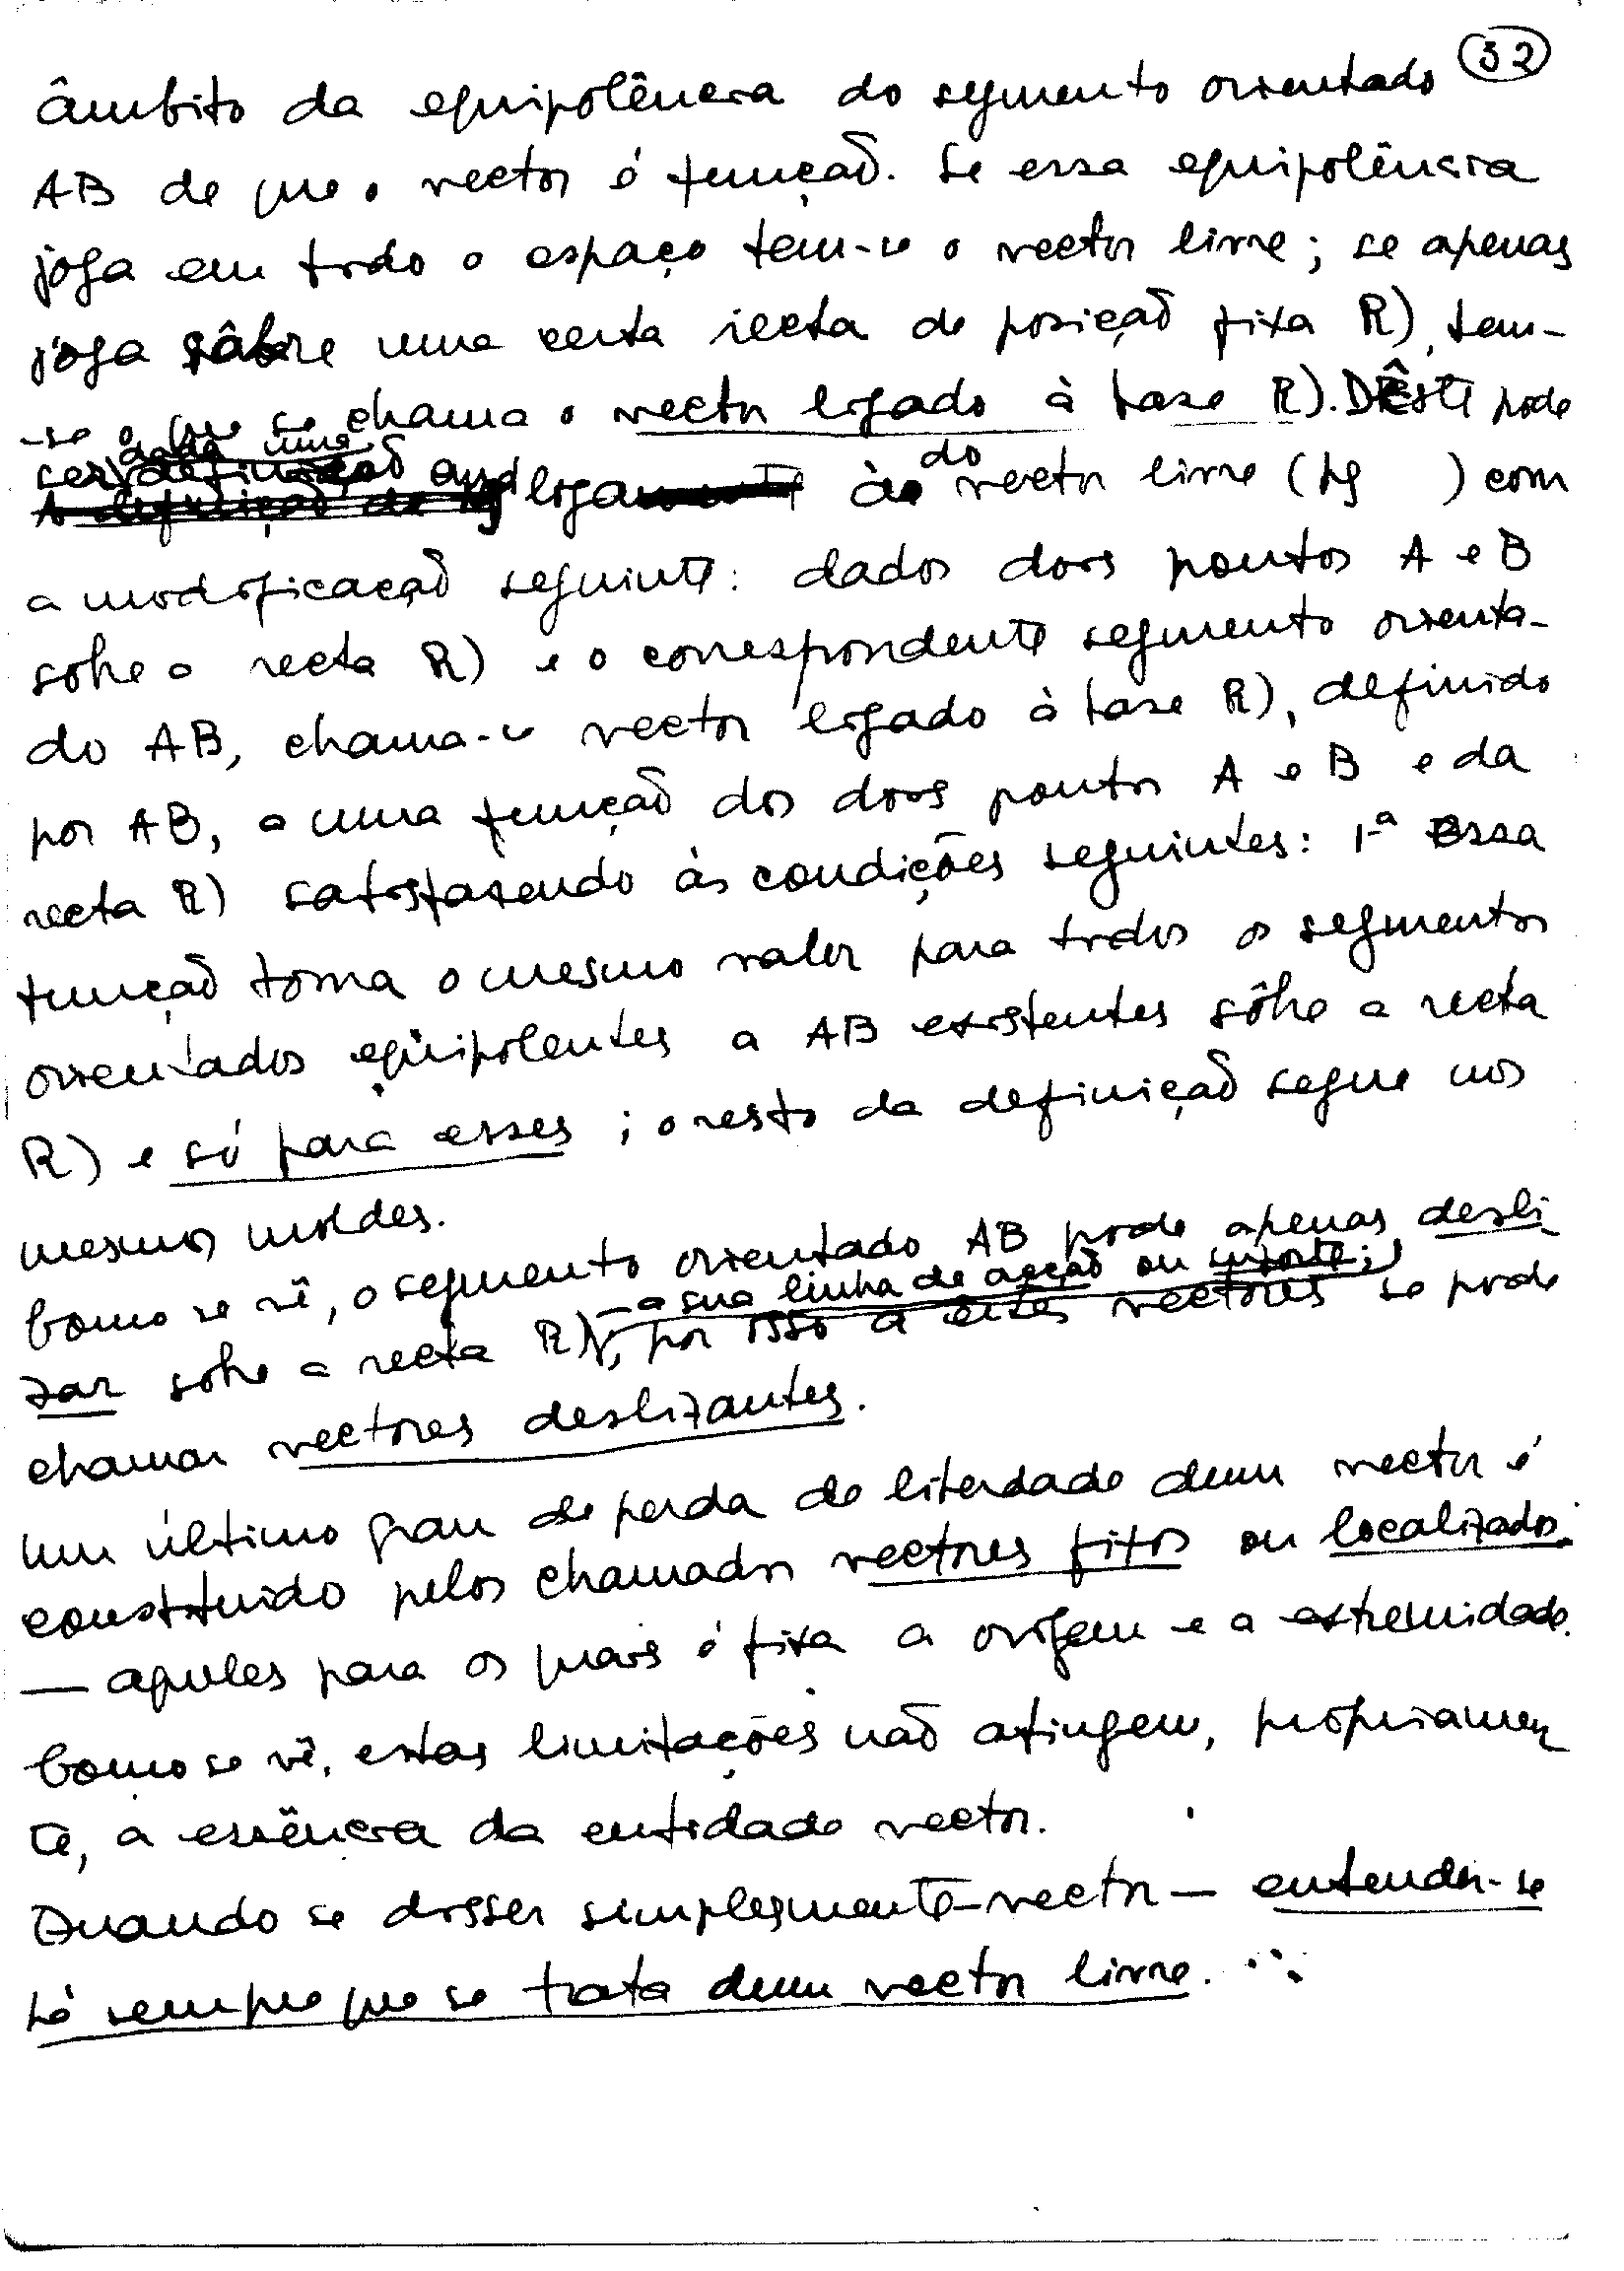 32
âmbito da equipolência do segmento orientado
AB de que o vector é função. Se essa equipolência
joga em todo o espaço tem-se o vector livre; se apenas
joga sôbre uma certa recta de posição fixa R), tem-
-se o que se chama o vector ligado à base R). Dêste pode
ser dada uma definição análoga à do vector livre (§ ) com
a modificação seguinte: dados dois pontos A e B
sobre a recta R) e o correspondente segmento orienta-
do AB, chama-se vector ligado à base R), definido
por AB, a uma função dos dois pontos A e B e da
recta R) satisfazendo às condições seguintes: 1ª Essa
função toma o mesmo valor para todos os segmentos
orientados eqüipolentes a AB existentes sôbre a recta
R) e só para esses; o resto da definição segue nos
mesmos moldes.
Como se vê, o segmento orientado AB pode apenas desli
zar sobre a recta R) – a sua linha de acção ou suporte; por isso a estes vectores se pode
chamar vectores deslizantes.
Um último grau de perda de liberdade dum vector é
constituido pelos chamados vectores fixos ou localizados.
— aqueles para os quais é fixa a origem e a extremidade.
Como se vê, estas limitações não atingem, propriamen
te, a essência da entidade vector.
Quando se disser simplesmente – vector – entender-se
há sempre que se trata dum vector livre.